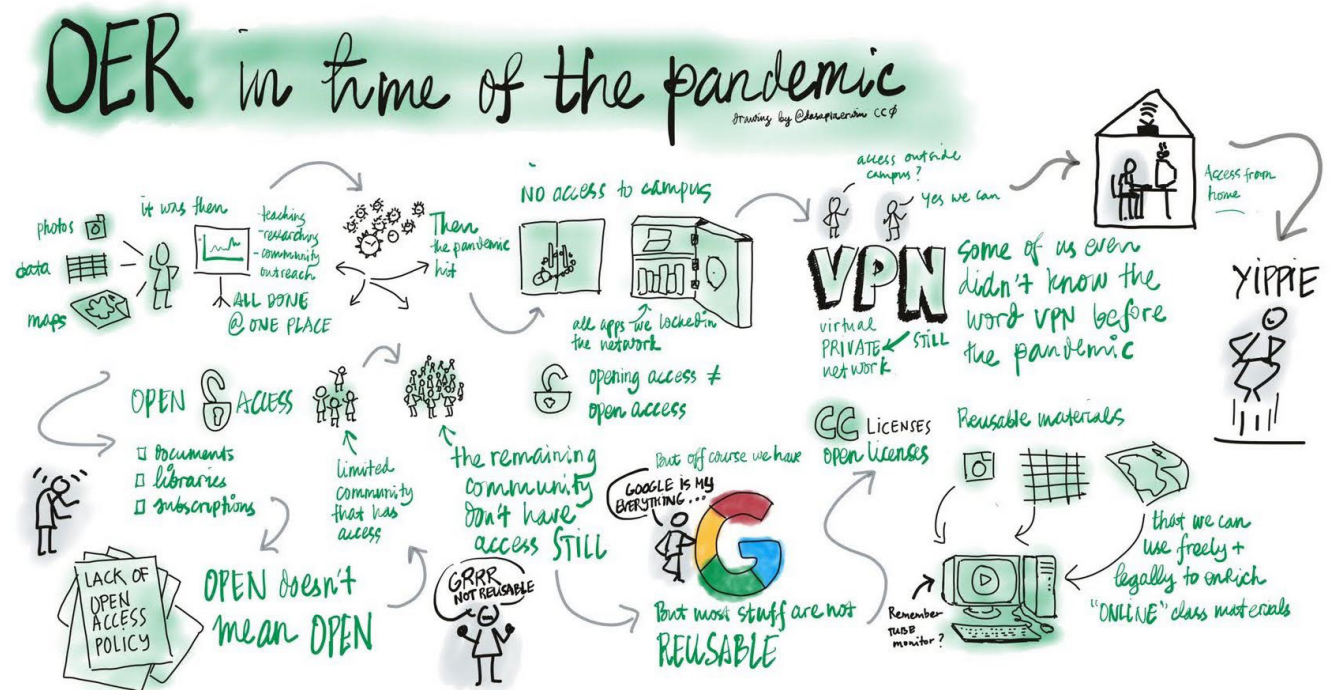 OER in time of the pandemic
Drawing by @dasaptaerwin CCØ
photos
data
maps
it was then
-teaching
-researching
-community
outreach
ALL DONE
@ ONE PLACE
Then
the pandemic
hit
NO ACCESS to campus
all apps we locked in
the network
opening access ≠
open access
access outside
campus?
Yes we can
VPN
virtual
PRIVATE
network
STILL
some of us even
didn't know the
word VPN before
the pandemic
Access from
home
YIPPIE
OPEN ACCESS
documents
libraries
subscriptions
LACK OF
OPEN
ACCESS
POLICY
OPEN doesn't
mean OPEN
limited
community
that has
access
the remaining
community
don't have
access STILL
GRRR
NOT REUSABLE
But off course we have
GOOGLE IS MY
EVERYTHING...
G
But most stuff are not
REUSABLE
CC LICENSES
open licenses
Reusable materials
that we can
use freely +
legally to enrich
"ONLINE" class materials
Remember
TUBE
monitor?